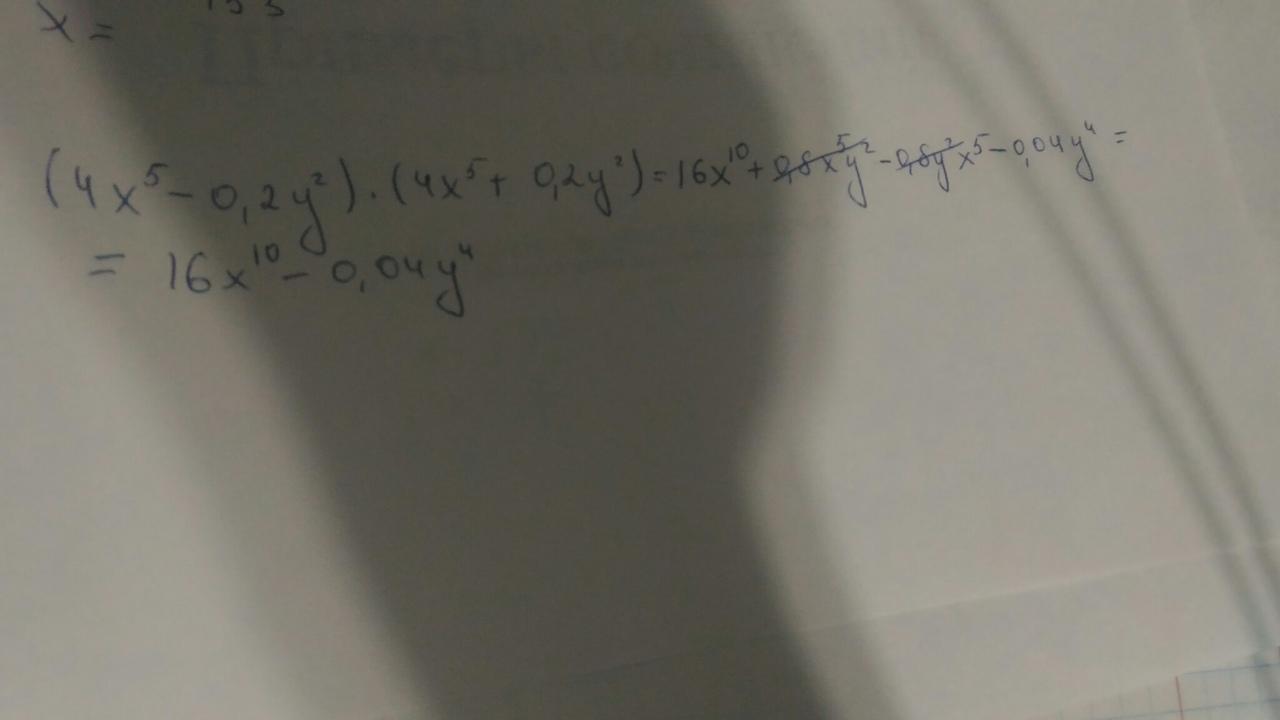 x =
(4x⁵ - 0,2y²) · (4x⁵ + 0,2y²) = 16x¹⁰ + 0,8x⁵y² - 0,8y²x⁵ - 0,04y⁴ =
= 16x¹⁰ - 0,04y⁴